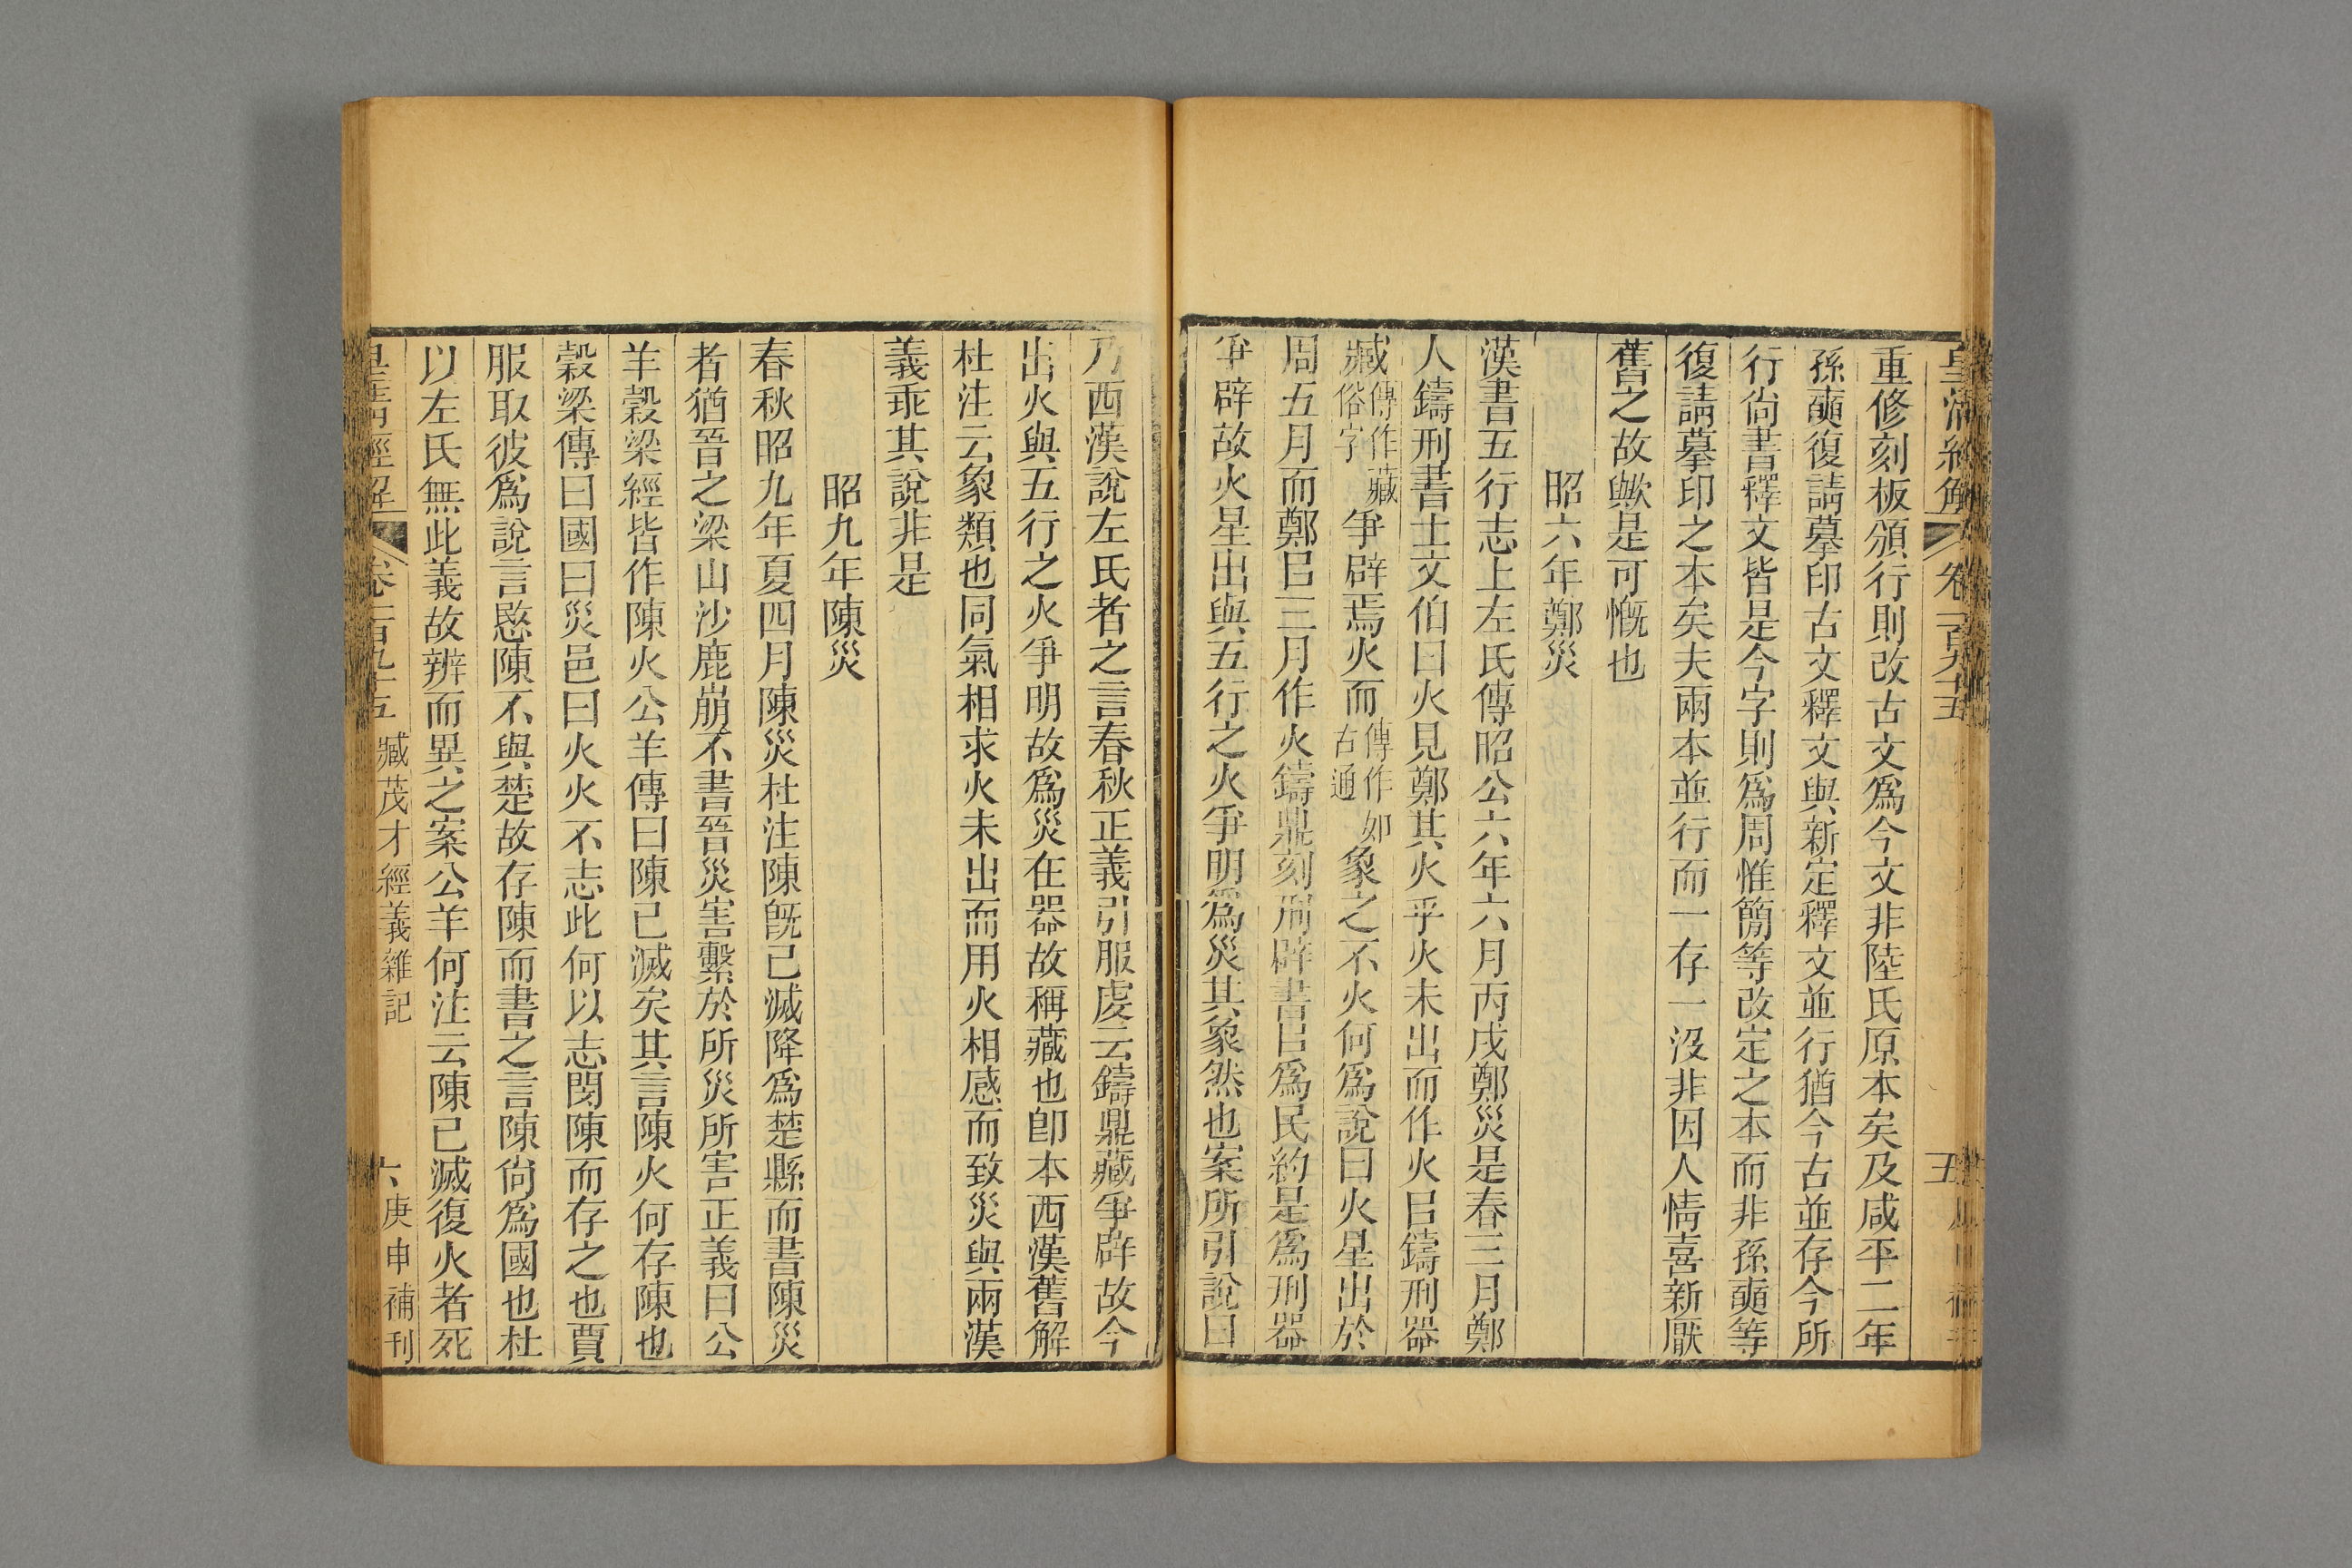 皇清經解 卷一百九十五 五
重修刻板頒行則改古文爲今文非陸氏原本矣及咸平二年
孫奭復請摹印古文釋文與新定釋文並行猶今古並存今所
行尙書釋文皆是今字則爲周惟簡等改定之本而非孫奭等
復請摹印之本矣夫兩本並行而一存一沒非因人情喜新厭
舊之故歟是可慨也
昭六年鄭災
漢書五行志上左氏傳昭公六年六月丙戌鄭災是春三月鄭
人鑄刑書士文伯曰火見鄭其火乎火未出而作火㠯鑄刑器
臧傳作藏俗字爭辟焉火而傳作如古通象之不火何爲說曰火星出於
周五月而鄭㠯三月作火鑄鼎刻刑辟書㠯爲民約是爲刑器
爭辟故火星出與五行之火爭明爲災其象然也案所引說曰
乃西漢說左氏者之言春秋正義引服虔云鑄鼎藏爭辟故今
出火與五行之火爭明故爲災在器故稱藏也卽本西漢舊解
杜注云象類也同氣相求火未出而用火相感而致災與兩漢
義乖其說非是
昭九年陳災
春秋昭九年夏四月陳災杜注陳旣已滅降爲楚縣而書陳災
者猶晉之梁山沙鹿崩不書晉災害繫於所災所害正義曰公
羊穀梁經皆作陳火公羊傳曰陳已滅矣其言陳火何存陳也
穀梁傳曰國曰災邑曰火火不志此何以志閔陳而存之也賈
服取彼爲說言愍陳不與楚故存陳而書之言陳尙爲國也杜
以左氏無此義故辨而異之案公羊何注云陳已滅復火者死
皇清經解 卷一百九十五 臧茂才經義雜記 六 庚申補刊